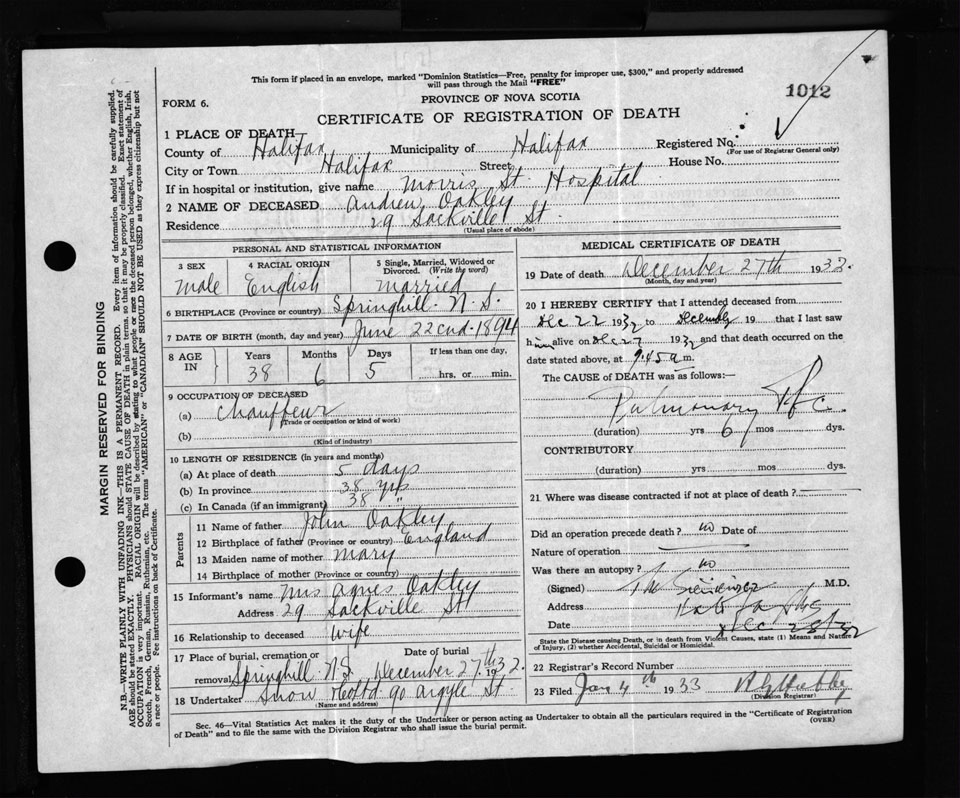 This form if placed in an envelope, marked "Dominion Statistics—Free, penalty for improper use, $300," and properly addressed
will pass through the Mail "FREE"
1012
FORM 6.
PROVINCE OF NOVA SCOTIA
CERTIFICATE OF REGISTRATION OF DEATH
1 PLACE OF DEATH
County of Halifax Municipality of Halifax Registered No.
(For use of Registrar General only)
City or Town Halifax Street House No.
If in hospital or institution, give name Morris St. Hospital
2 NAME OF DECEASED Andrew Oakley
Residence 29 Sackville St
(Usual place of abode)
PERSONAL AND STATISTICAL INFORMATION
3 SEX 4 RACIAL ORIGIN 5 Single, Married, Widowed or Divorced. (Write the word)
Male English Married
6 BIRTHPLACE (Province or country) Springhill N.S.
7 DATE OF BIRTH (month, day and year) June 22cnd 1894
8 AGE IN Years Months Days If less than one day,
38 6 5 hrs. or min.
9 OCCUPATION OF DECEASED
(a) Chauffeur
(Trade or occupation or kind of work)
(b)
(Kind of industry)
10 LENGTH OF RESIDENCE (in years and months)
(a) At place of death 5 days
(b) In province 38 yrs
(c) In Canada (if an immigrant) 38 "
Parents
11 Name of father John Oakley
12 Birthplace of father (Province or country) England
13 Maiden name of mother Mary
14 Birthplace of mother (Province or country)
15 Informant's name Mrs Agnes Oakley
Address 29 Sackville St
16 Relationship to deceased Wife
17 Place of burial, cremation or removal Springhill N.S. Date of burial December 27th 1932.
18 Undertaker Snow & Co Ltd 90 Argyle St.
(Name and address)
MEDICAL CERTIFICATE OF DEATH
19 Date of death December 27th 1932.
(Month, day and year)
20 I HEREBY CERTIFY that I attended deceased from
Dec 22 1932 to December 19 that I last saw
him alive on Dec 27 1932 and that death occurred on the
date stated above, at 9.45 a m.
The CAUSE of DEATH was as follows:
Pulmonary
(duration) yrs 6 mos dys.
CONTRIBUTORY
(duration) yrs mos dys.
21 Where was disease contracted if not at place of death?
Did an operation precede death? no Date of
Nature of operation
Was there an autopsy? no
(Signed) M.D.
Address
Date Dec 28/32
State the Disease causing Death, or in death from Violent Causes, state (1) Means and Nature
of Injury, (2) whether Accidental, Suicidal or Homicidal.
22 Registrar's Record Number
23 Filed Jan 4th 1933
(Division Registrar)
Sec. 46—Vital Statistics Act makes it the duty of the Undertaker or person acting as Undertaker to obtain all the particulars required in the "Certificate of Registration
of Death" and to file the same with the Division Registrar who shall issue the burial permit. (OVER)
MARGIN RESERVED FOR BINDING
N.B.—WRITE PLAINLY WITH UNFADING INK—THIS IS A PERMANENT RECORD. Every item of information should be carefully supplied.
AGE should be stated EXACTLY. PHYSICIANS should STATE CAUSE OF DEATH in plain terms, so that it may be properly classified. Exact statement of
OCCUPATION is very important. RACIAL ORIGIN will be described by stating to what people or race the deceased person belonged, whether English, Irish,
Scotch, French, German, Russian, Ruthenian, etc. The terms "AMERICAN" or "CANADIAN" SHOULD NOT BE USED as they express citizenship but not
a race or people. See instructions on back of Certificate.